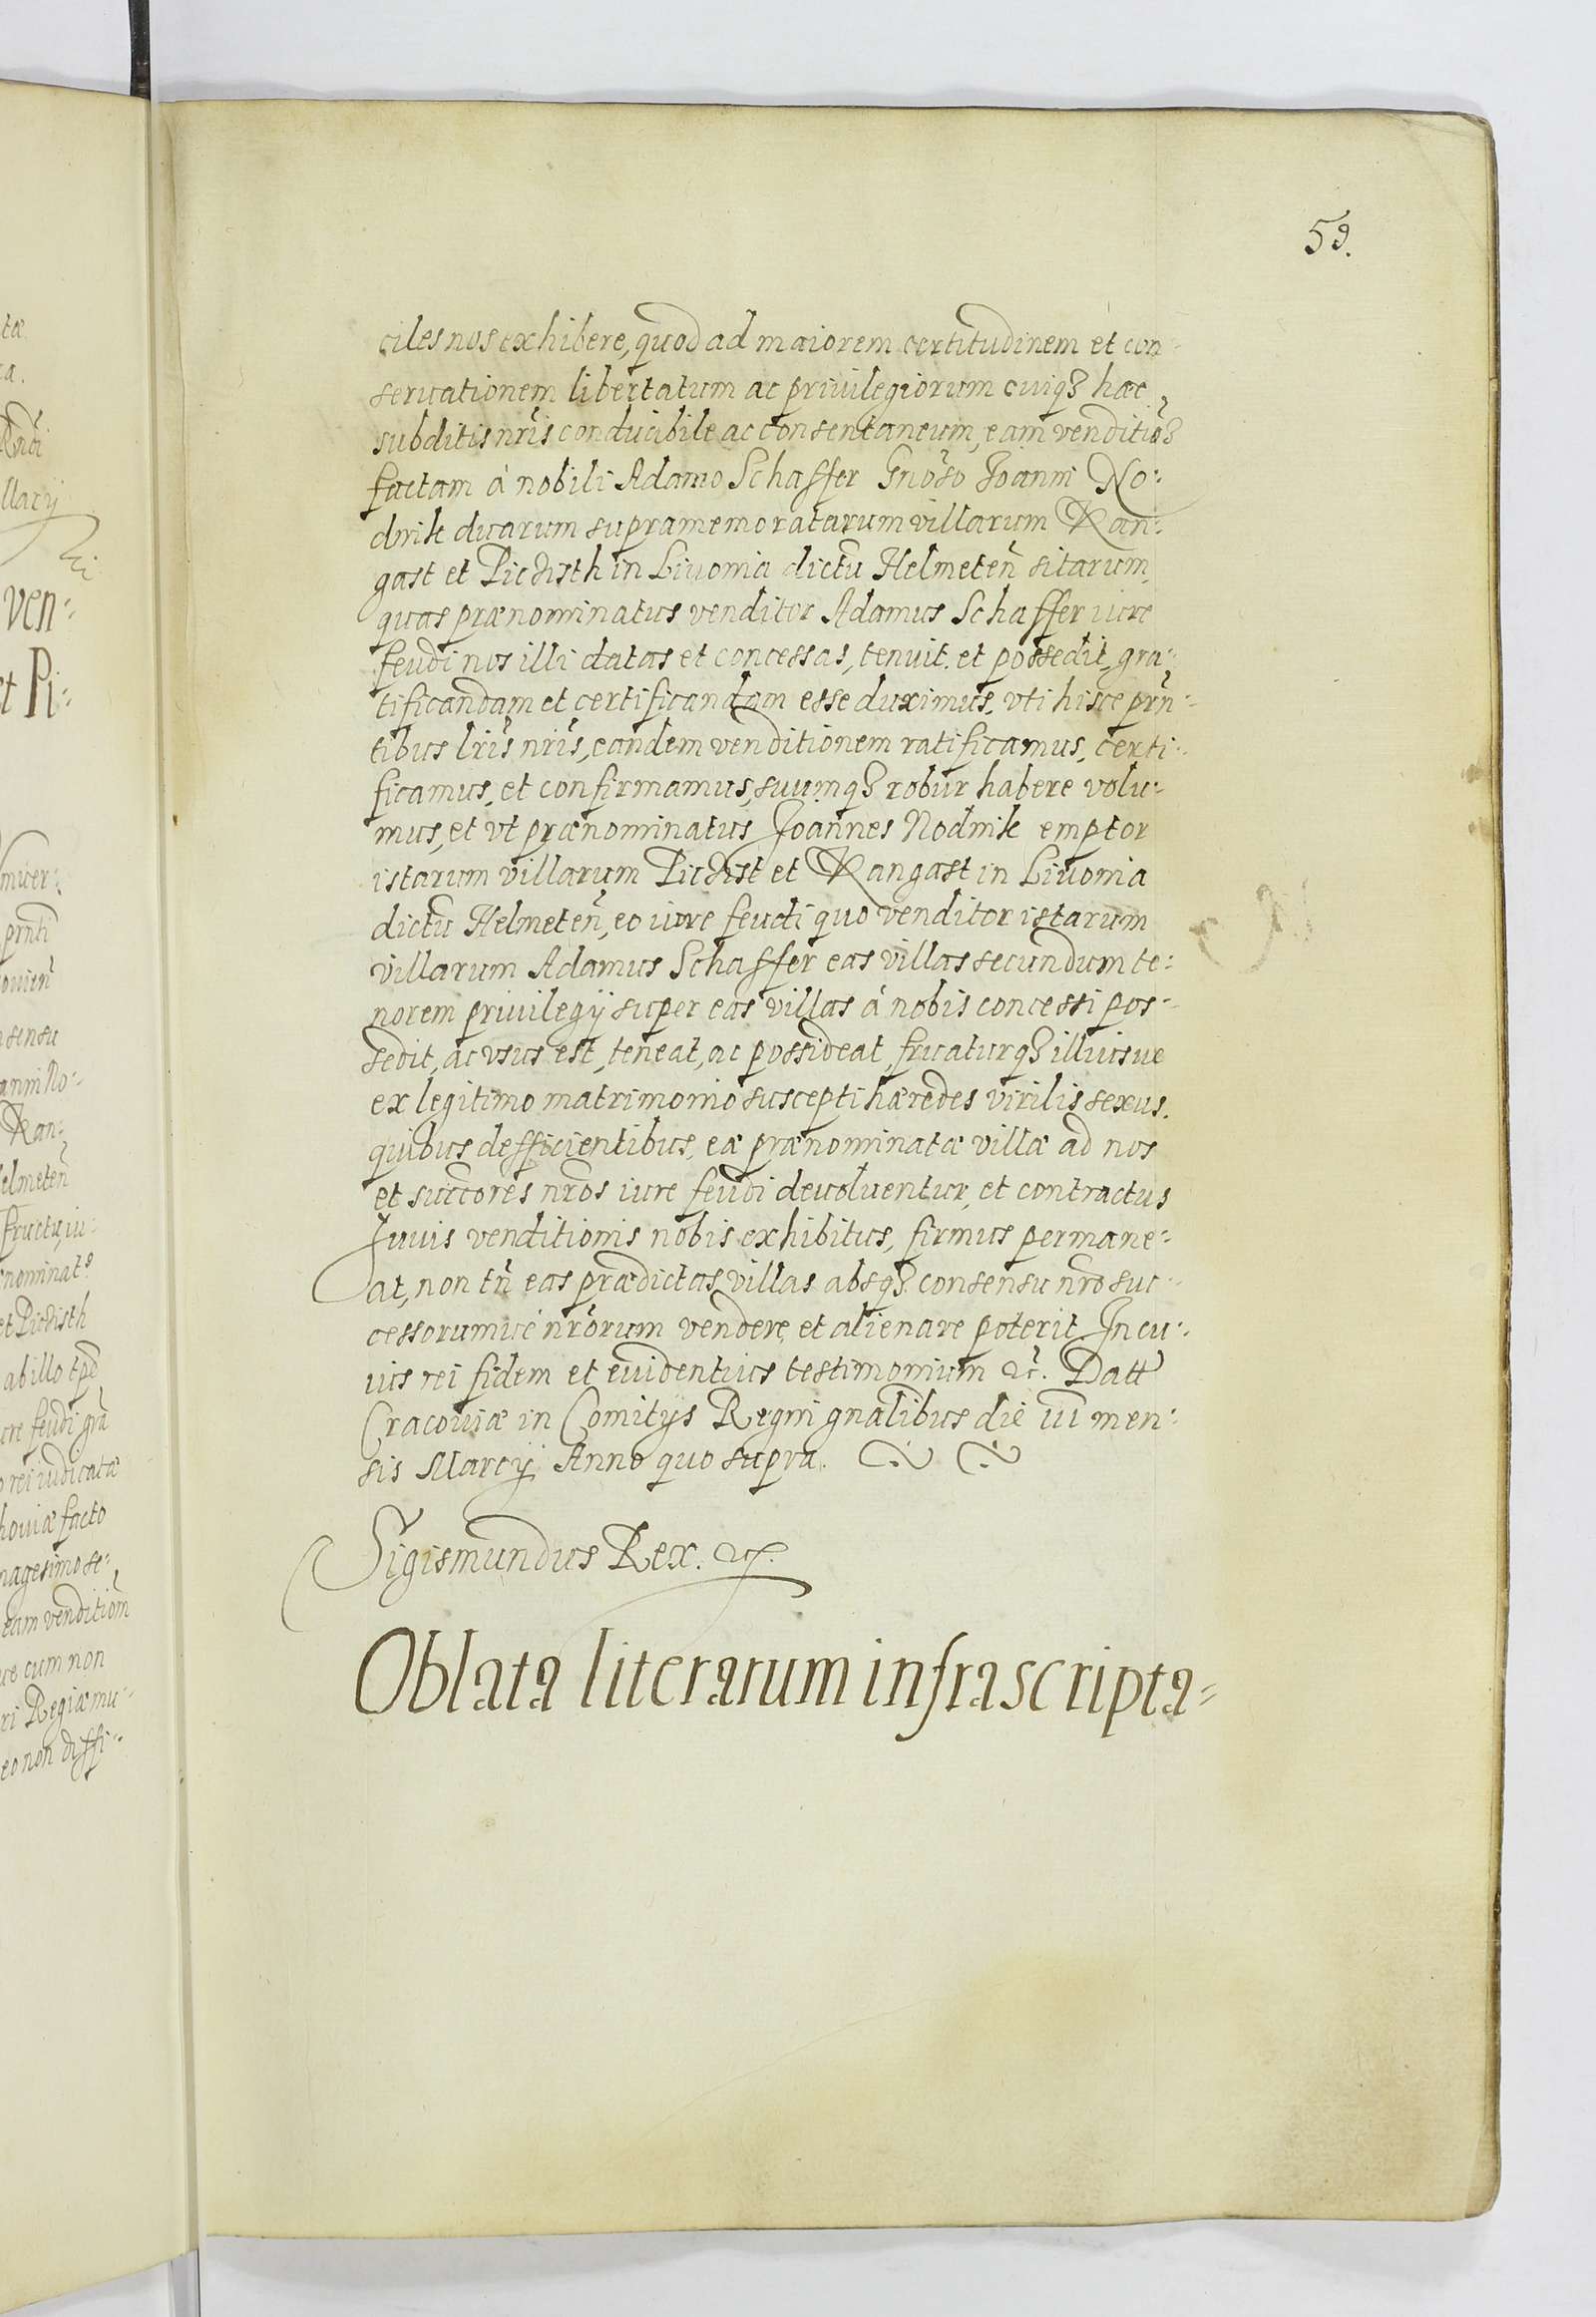 59.
ciles nos exhibere, quod ad maiorem certitudinem et con-
seruationem libertatum ac priuilegiorum cuiqȝ hæc
subditis nr̃is conducibile ac consentaneum, eam venditioȝ
factam à nobili Adamo Schaffer Gnõso Joanni No:
dnik duarum supramemoratarum villarum Ran:
gast et Picdisth in Liuonia dictũ Helmeteñ sitarum,
quas prænominatus venditor Adamus Schaffer iure
feudi nos illi datas et concessas, tenuit. et possedit, gra:
tificandam et certificandam esse duximus, vti hisce prñ-
tibus lr̃is nr̃is, eandem venditionem ratificamus, certi:
ficamus, et confirmamus, suumqȝ robur habere volu:
mus, et vt prænominatus Joannes Nodnik emptor
istarum villarum Picdist et Rangast in Liuonia
dictũ Helmeteñ, eo iure feudi quo venditor istarum
villarum Adamus Schaffer eas villas secundum te:
norem priuilegij super eas villas à nobis concessi pos-
sedit, ac vsus est, teneat, ac possideat, fruaturqȝ illiusue
ex legitimo matrimonio suscepti hæredes virilis sexus.
quibus defficientibus, eæ prænominatæ villæ ad nos
et succores nr̃os iure feudi deuoluentur, et contractus
huius venditionis nobis exhibitus, firmus permane:
at, non tñ eas prædictas villas absqȝ consensu nr̃o suc-
cessorumue nr̃orum vendere, et alienare poterit. In cu:
ius rei fidem et euidentius testimonium &c̃. Datt
Cracouiæ in Comitijs Regni gnalibus die vi men:
sis Marcij Anno quo supra.
Sigismundus Rex. &c.
Oblata literarum infrascripta=